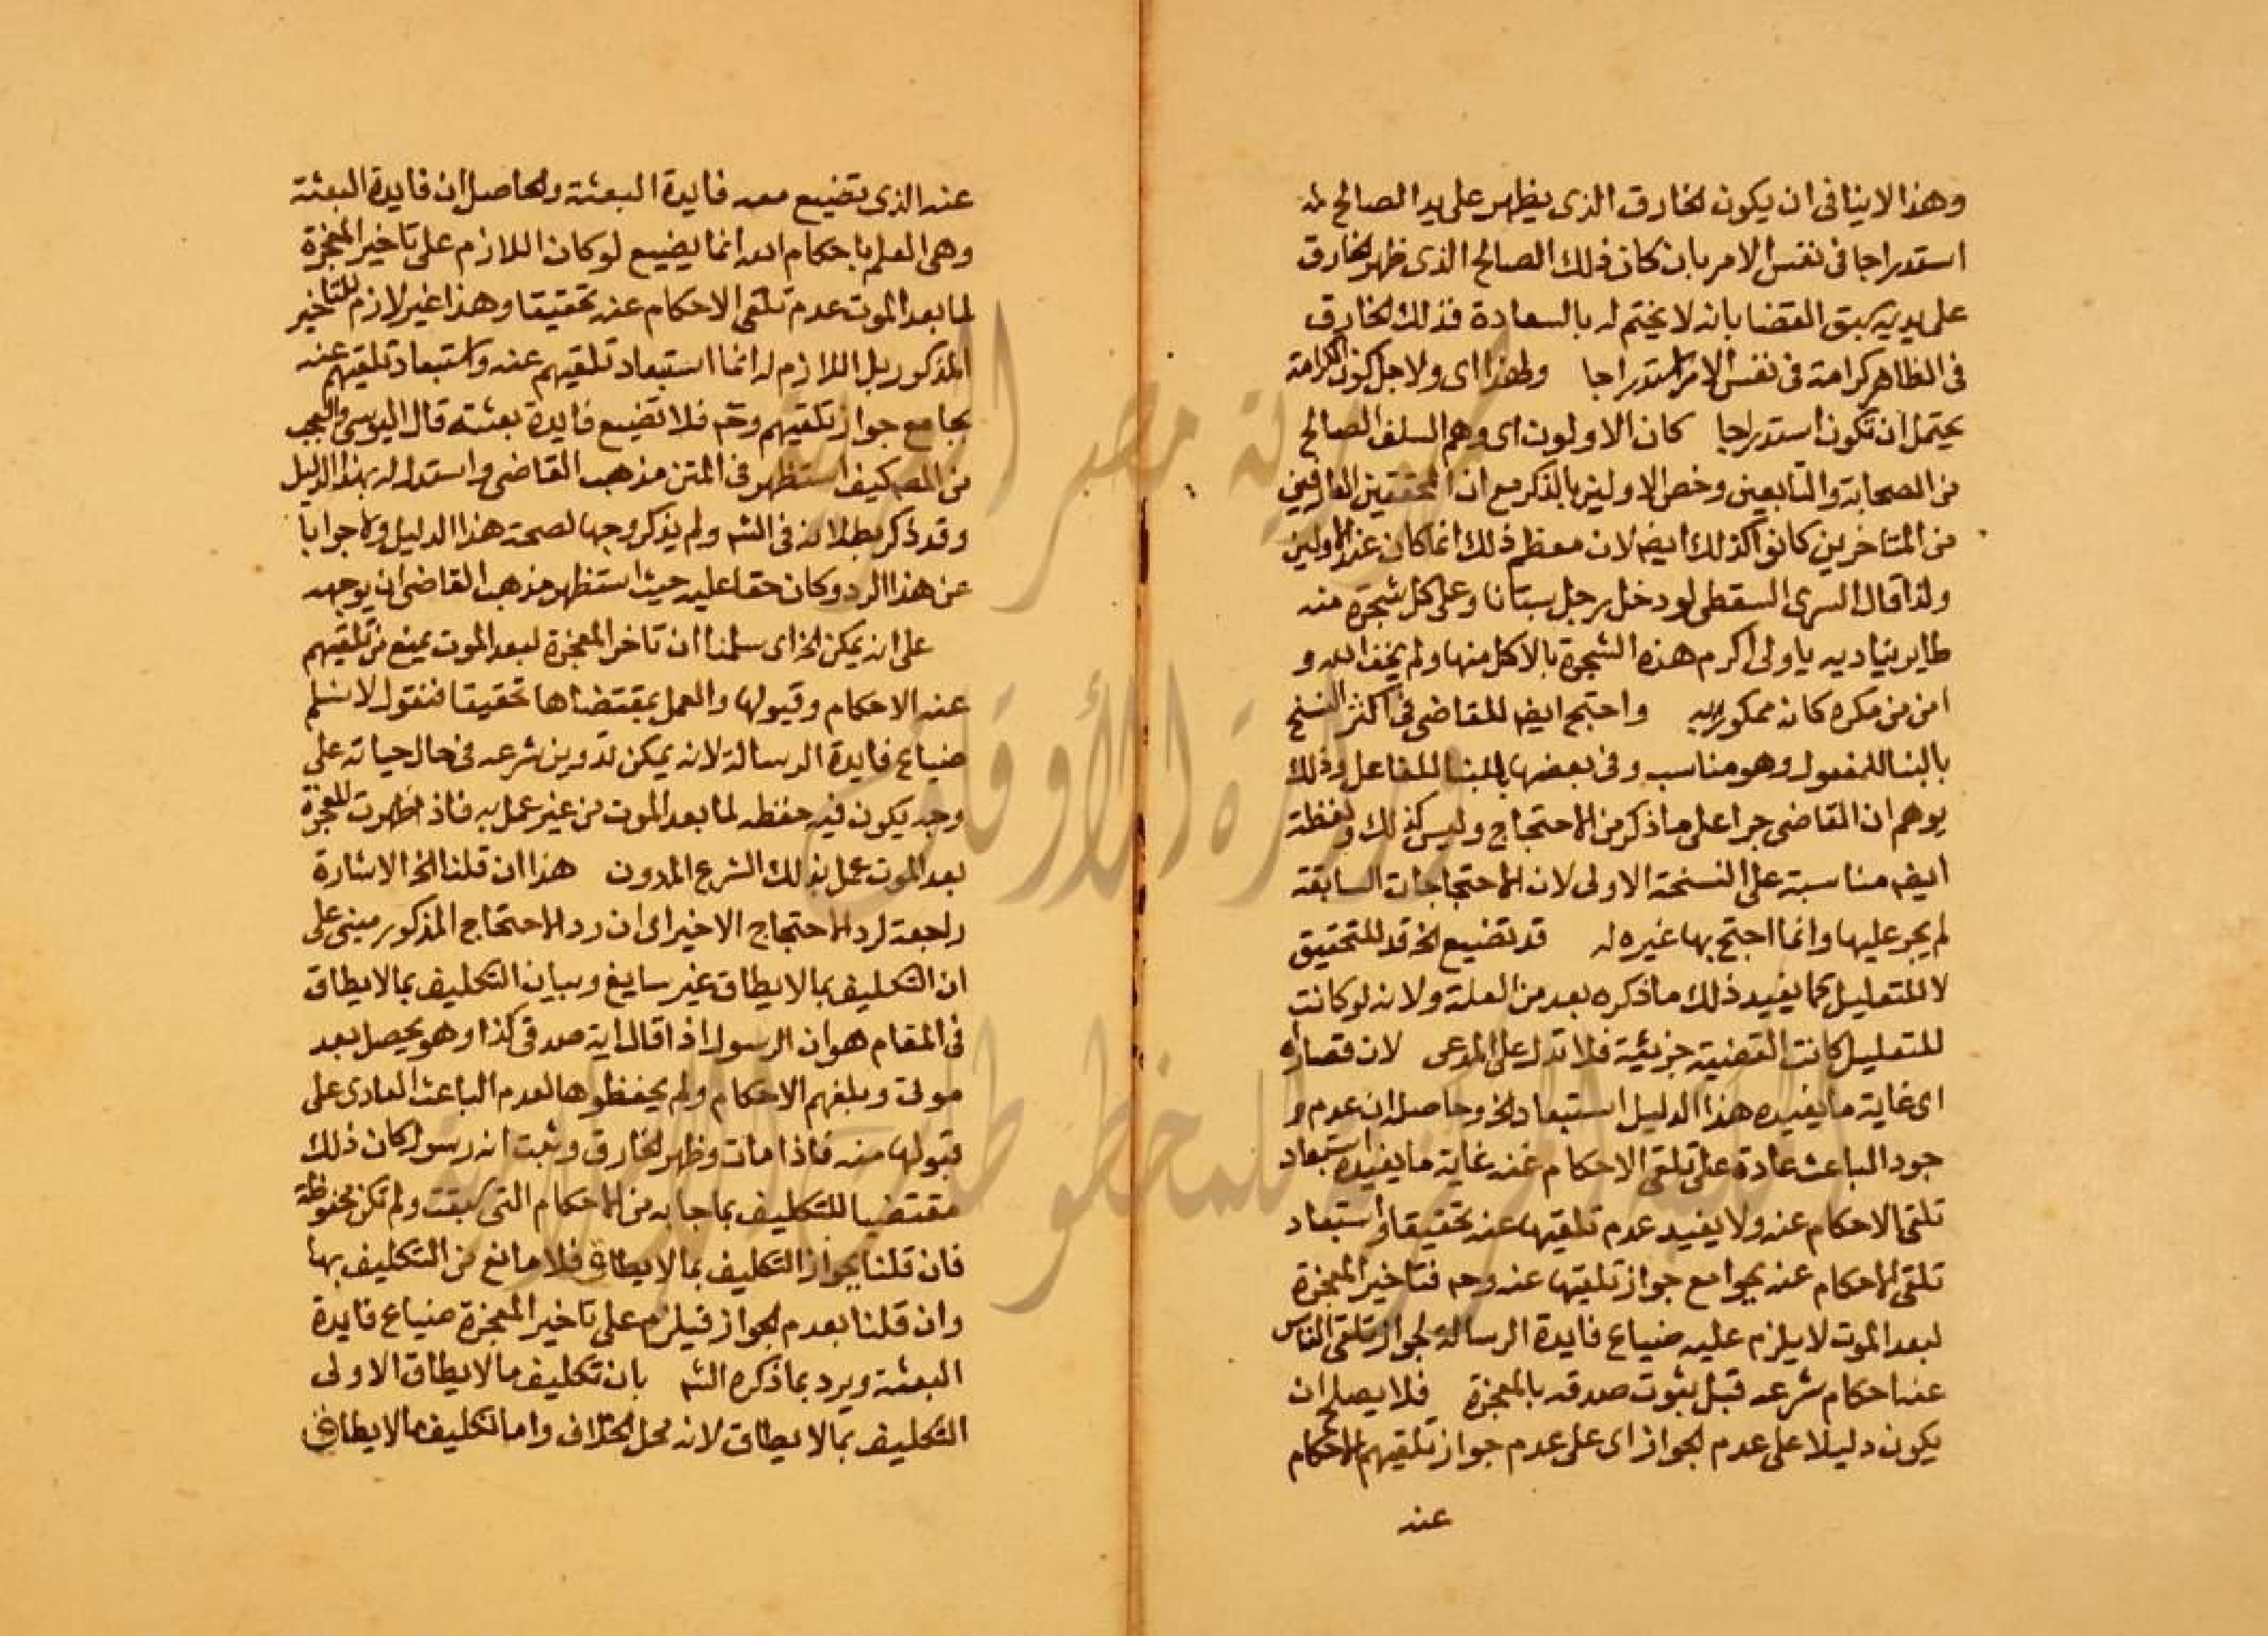 وهذا لاينافى ان يكون الخارق الذى يظهر على يد الصالح
استدراجا فى نفس الامر بان كان ذلك الصالح الذى ظهر الخارق
على يديه سبق القضا بانه لا يختم له بالسعادة فذلك الخارق
فى الظاهر كرامة فى نفس الامر استدراجا ولهذا اى ولاجل كون الكرامة
يحتمل ان تكون استدراجا كان الاولون اى وهم السلف الصالح
من الصحابة والتابعين وخص الاولين بالذكر مع ان المحققين العارفين
من المتاخرين كانوا كذلك ايضا لان معظم ذلك انما كان عند الاولين
ولذا قال السرى السقطى لو دخل رجل بستانا وعلى كل شجرة منه
طاير يناديه يا ولى اكرم هذه الشجرة بالاكل منها ولم يخف الله و
امن من مكره كان ممكورا به واحتج ايضا للقاضى فى اكثر النسخ
بالبنا للمفعول وهو مناسب وفى بعضها بالبنا للفاعل وذلك
يوهم ان القاضى جرا على ما ذكر من الاحتجاج وليس كذلك ولفظة
ايضا مناسبة على النسخة الاولى لان الاحتجاجات السابقة
لم يجر عليها وانما احتج بها غيره له قد تضيع الخ قد للتحقيق
لا للتعليل كما يفيد ذلك ما ذكره بعد من العلة ولانه لو كانت
للتعليل كانت القضية جزيئية فلا تدل على المدعى لان قصاراه
اى غاية ما يفيده هذا الدليل استبعاد الخ وحاصله ان عدم و
جود الباعث عادة على تلقى الاحكام عنه غاية ما يفيده استبعاد
تلقى الاحكام عنه ولا يفيد عدم تلقيها عنه تحقيقا واستبعاد
تلقى الاحكام عنه يجوامع جواز تلقيها عنه وحـ فتاخير المعجزة
لبعد الموت لا يلزم عليه ضياع فايدة الرسالة لجواز تلقى الناس
عنه احكام شرعه قبل ثبوت صدقه بالمعجزة فلا يصلح ان
يكون دليلا على عدم الجواز اى على عدم جواز تلقيهم الاحكام
عنه
عنه الذى تضيع معه فايدة البعثة والحاصل ان فايدة البعثة
وهى العلم باحكام الله انما يضيع لو كان اللازم على تاخير المعجزة
لما بعد الموت عدم تلقى الاحكام عنه تحقيقا وهذا غير لازم للتاخير
المذكور بل اللازم له انما استبعاد تلقيهم عنه واستبعاد تلقيهم عنه
يجامع جواز تلقيهم وحـ فلا تضيع فايدة بعثته قال اليوسى والعجب
من المص كيف استظهر فى المتن مذهب القاضى واستدل له بهذا الدليل
وقد ذكر بطلانه فى الشـ ولم يذكر وجها لصحة هذا الدليل ولا جوابا
عن هذا الرد وكان حقا عليه حيث استظهر مذهب القاضى ان يوجهه
على انه يمكن الخ اى سلمنا ان تاخر المعجزة لبعد الموت يمنع من تلقيهم
عنه الاحكام وقبولها والعمل بمقتضاها تحقيقا فنقول لا نسلم
ضياع فايدة الرسالة لانه يمكن تدوين شرعه فى حال حياته على
وجه يكون فيه حفظه لما بعد الموت من غير عمل به فاذا ظهرت المعجزة
بعد الموت عمل بذلك الشرع المدون هذا ان قلنا الخ الاشارة
راجعة لرد الاحتجاج الاخير اى ان رد الاحتجاج المذكور مبنى على
ان التكليف بما لا يطاق غير سايغ وبيان التكليف بما لا يطاق
فى المقام هو ان الرسول اذا قال اية صدقى كذا وهو يحصل بعد
موتى وبلغهم الاحكام ولم يحفظوها لعدم الباعث العادى على
قبولها منه فاذا مات وظهر الخارق وثبت انه رسول كان ذلك
مقتضيا للتكليف بما جا به من الاحكام التى سبقت ولم تكن محفوظة
فان قلنا بجواز التكليف بما لا يطاق فلا مانع من التكليف بها
وان قلنا بعدم الجواز فيلزم على تاخير المعجزة ضياع فايدة
البعثة ويرد بما ذكره الشـ بان تكليف ما لا يطاق الاولى
التكليف بما لا يطاق لانه محل الخلاف واما تكليف ما لا يطاق